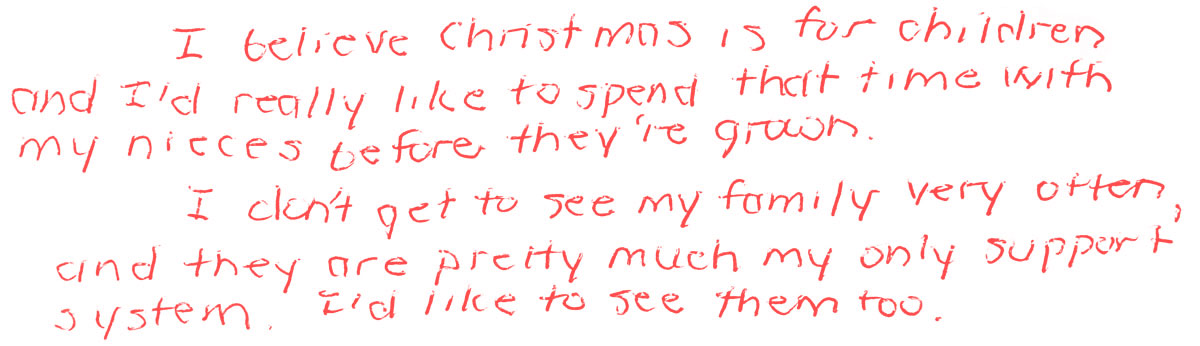 I believe Christmas is for children
and I'd really like to spend that time with
my nieces before they're grown.
I don't get to see my family very often,
and they are pretty much my only support
system. I'd like to see them too.